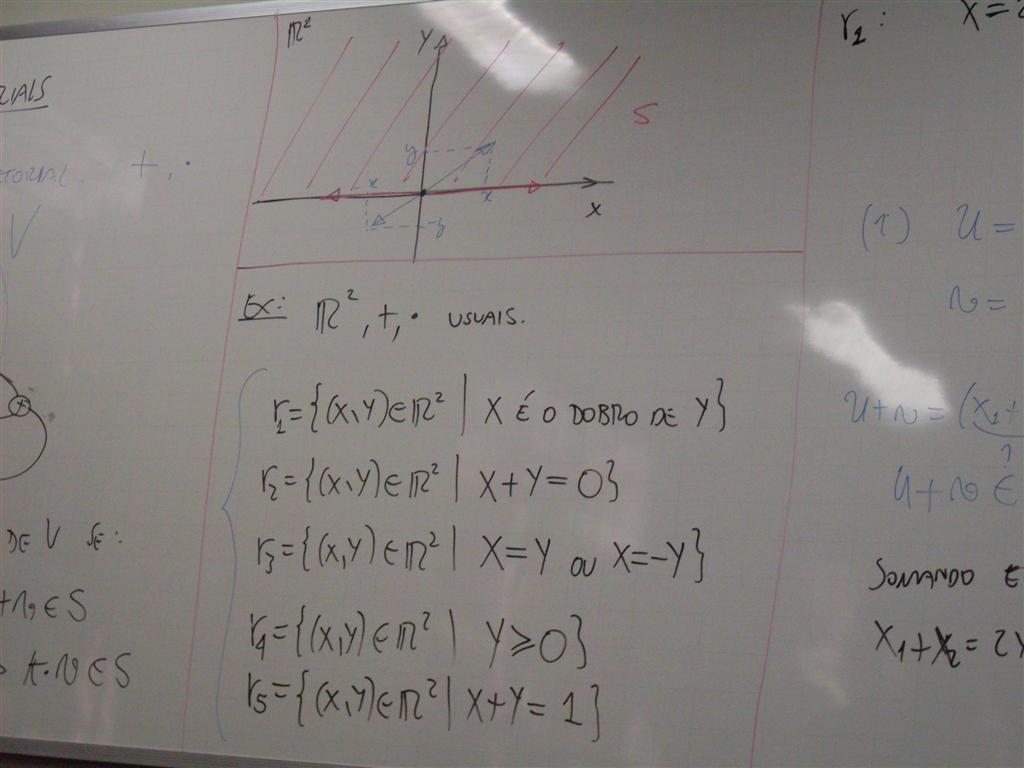 +, ·
V
DE V SE:
∈ S
t·v ∈ S
ℝ²
Y
S
y
x
x
-y
X
EX: ℝ², +, · USUAIS.
r₁={(X,Y)∈ℝ² | X É O DOBRO DE Y}
r₂={(X,Y)∈ℝ² | X+Y=0}
r₃={(X,Y)∈ℝ² | X=Y OU X=-Y}
r₄={(X,Y)∈ℝ² | Y≥0}
r₅={(X,Y)∈ℝ² | X+Y=1}
r₁: X=
(1) u=
v=
u+v=(X₁+
?
u+v∈
SOMANDO E
X₁+X₂=2Y